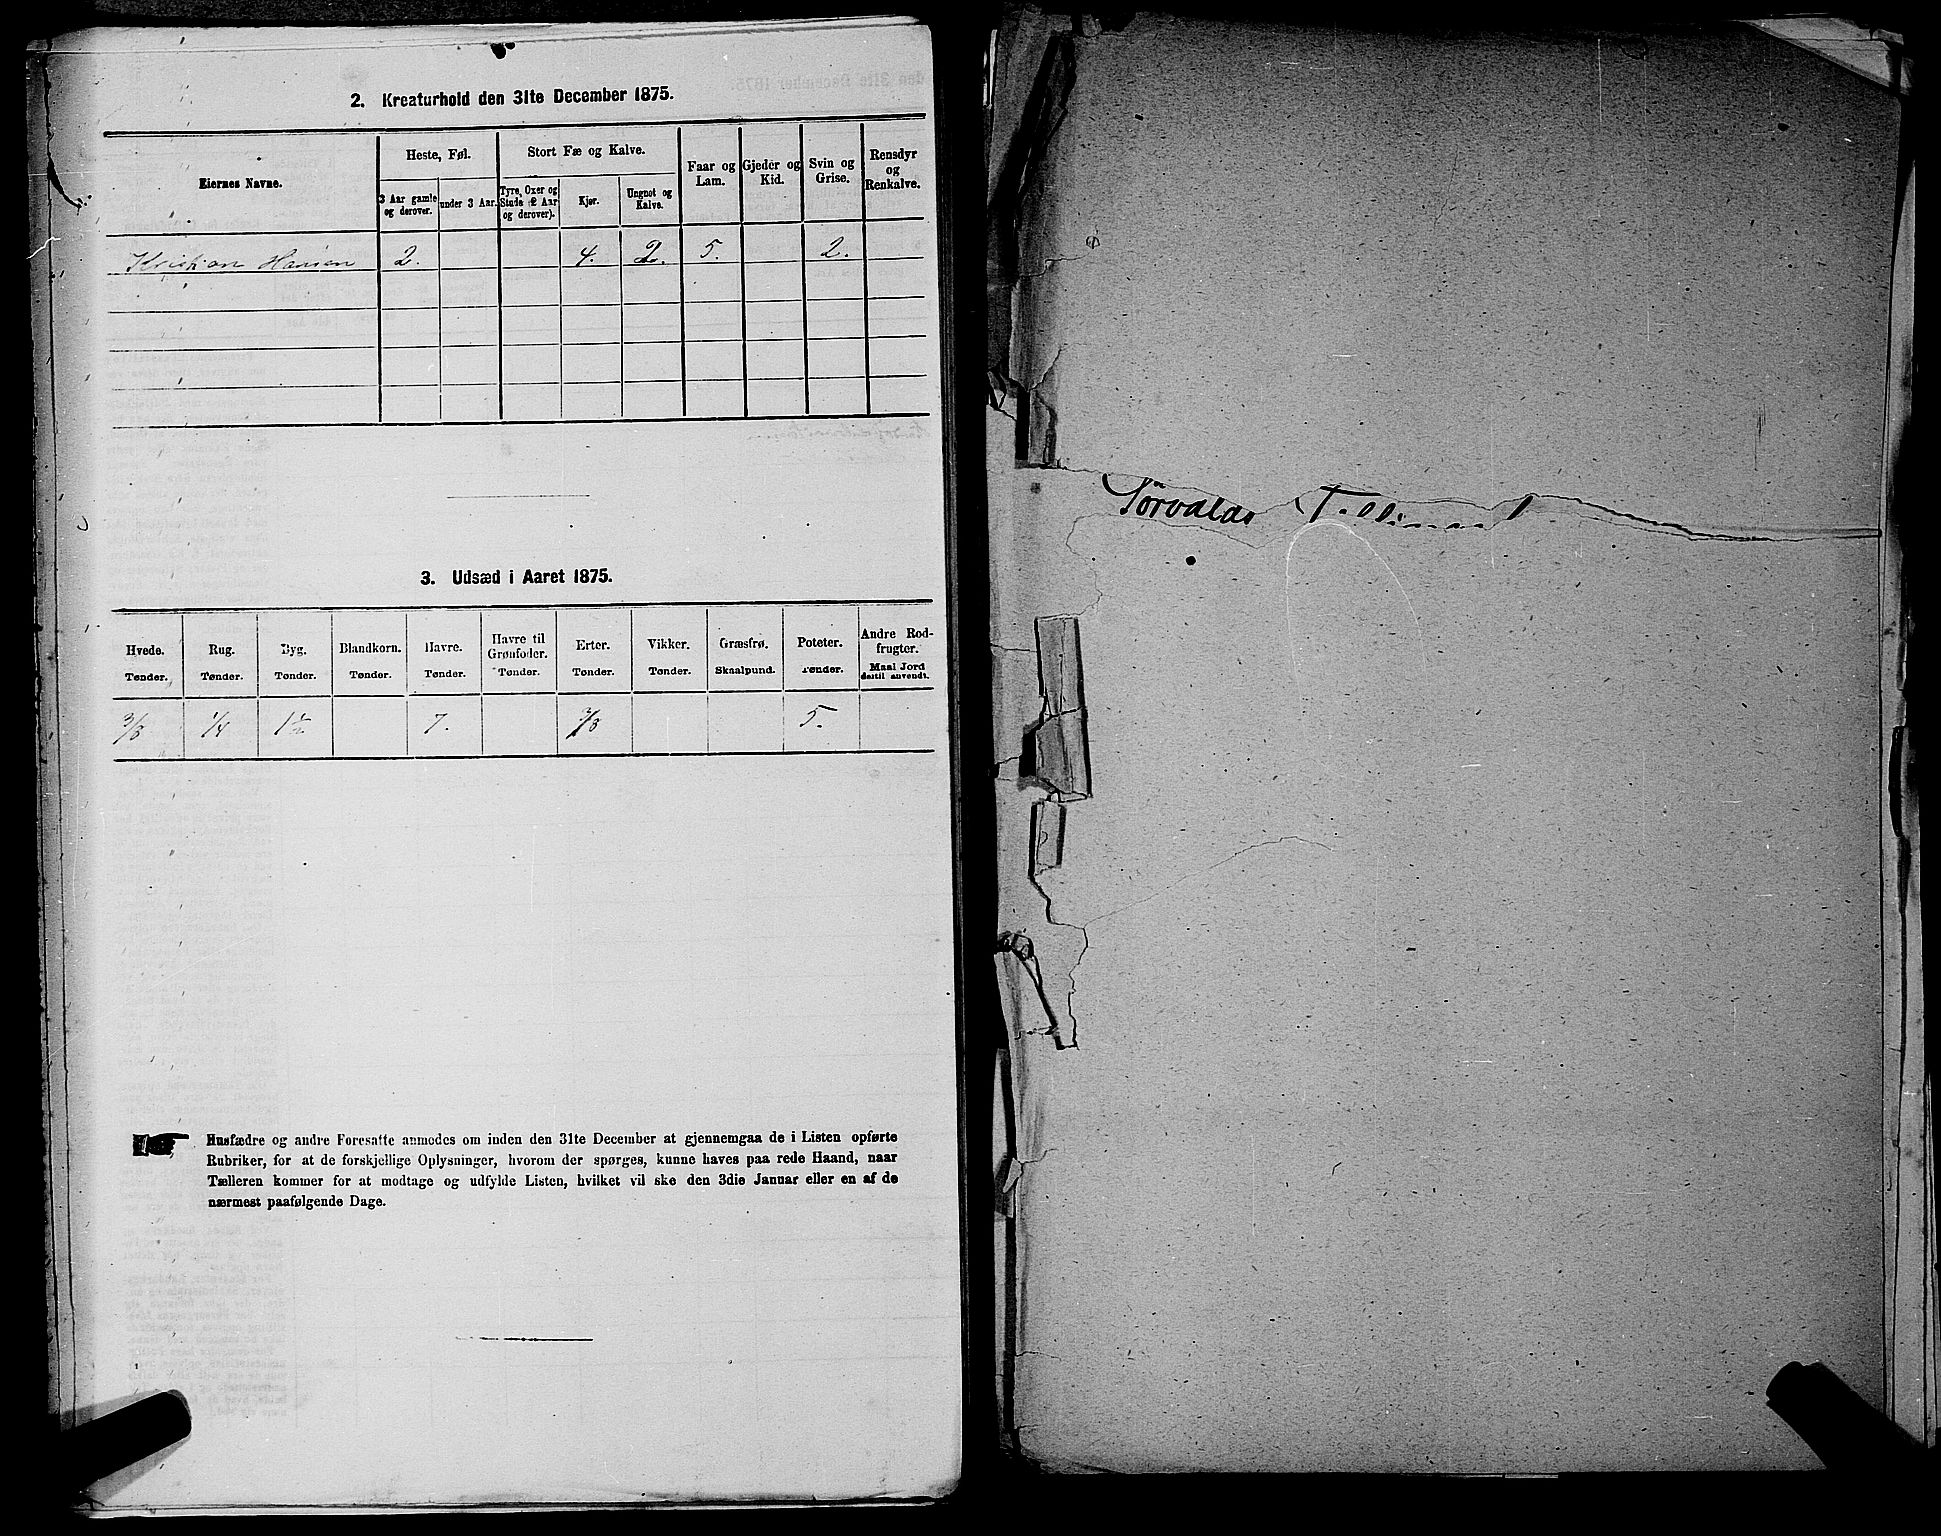 2. Kreaturhold den 31te December 1875.
Eiernes Navne.
Heste, Føl.
3 Aar gamle og derover.
under 3 Aar.
Stort Fæ og Kalve.
Tyre, Oxer og Stude (2 Aar og derover).
Kjør.
Ungnøt og Kalve.
Faar og Lam.
Gjeder og Kid.
Svin og Grise.
Rensdyr og Renkalve.
Kristian Hansen 2. 4. 2. 5. 2.
3. Udsæd i Aaret 1875.
Hvede. Rug. Byg. Blandkorn. Havre. Havre til Grønfoder. Erter. Vikker. Græsfrø. Poteter. Andre Rodfrugter.
Tønder. Tønder. Tønder. Tønder. Tønder. Tønder. Tønder. Tønder. Skaalpund. Tønder. Maal Jord dertil anvendt.
3/8 1/4 1 1/2 7. 3/8 5.
Husfædre og andre Foresatte anmodes om inden den 31te December at gjennemgaa de i Listen opførte
Rubriker, for at de forskjellige Oplysninger, hvorom der spørges, kunne haves paa rede Haand, naar
Tælleren kommer for at modtage og udfylde Listen, hvilket vil ske den 3die Januar eller en af de
nærmest paafølgende Dage.